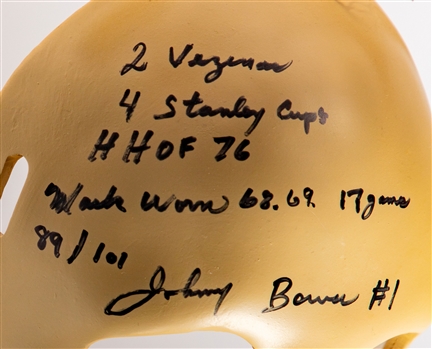 2 Vezinas
4 Stanley Cups
HHOF 76
Mask Worn 68.69. 17 games
89/101
Johnny Bower #1